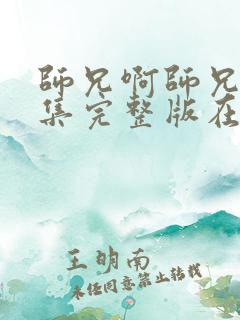 師兄啊師兄
集完整版在
王明南
未经同意禁止转载